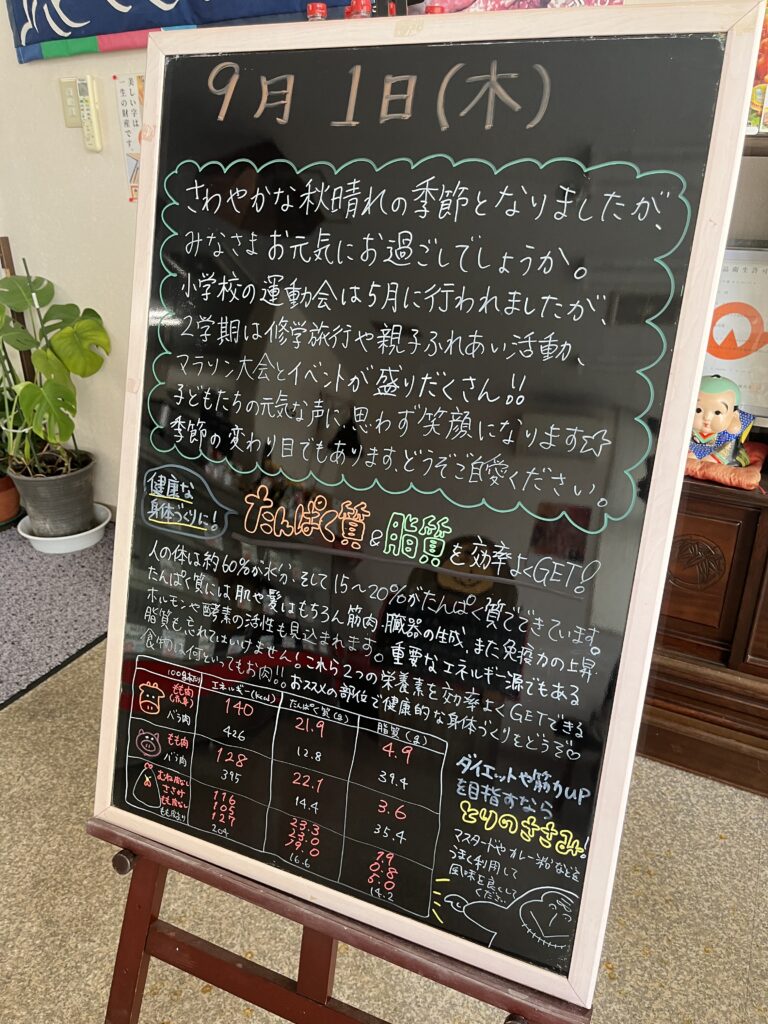 美しい字は
一生の財産です。
9月 1日(木)
さわやかな秋晴れの季節となりましたが、
みなさまお元気にお過ごしでしょうか。
小学校の運動会は5月に行われましたが、
2学期は修学旅行や親子ふれあい活動、
マラソン大会とイベントが盛りだくさん!!
子どもたちの元気な声に思わず笑顔になります☆
季節の変わり目でもあります、どうぞご自愛ください。
健康な
身体づくりに!
たんぱく質&脂質を効率よくGET!
人の体は約60%が水分、そして15~20%がたんぱく質でできています。
たんぱく質には肌や髪はもちろん筋肉、臓器の生成、また免疫力の上昇、
ホルモンや酵素の活性も見込まれます。重要なエネルギー源でもある
脂質も忘れてはいけません!これら2つの栄養素を効率よくGETできる
食物は何といってもお肉!!おススメの部位で健康的な身体づくりをどうぞ
100gあたり エネルギー(kcal) たんぱく質(g) 脂質(g)
もも肉 140 21.9 4.9
バラ肉 426 12.8 39.4
もも肉 128 22.1 3.6
バラ肉 395 14.4 35.4
むね皮なし 116 23.3 1.9
ささみ 105 23.0 0.8
もも皮なし 127 19.0 5.0
もも皮あり 204 16.6 14.2
ダイエットや筋力UP
を目指すなら
とりのささみ!
マスタードやカレー粉などを
うまく利用して
風味を良くして
ください